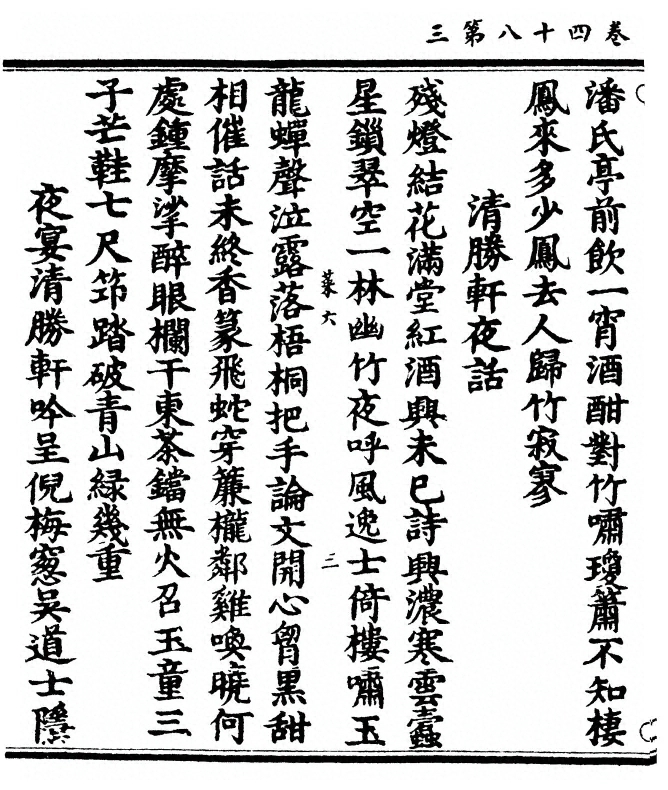 卷四十八第三
潘氏亭前飲一宵酒酣對竹嘯瓊簫不知棲
鳳來多少鳳去人歸竹寂寥
清勝軒夜話
殘燈結花滿堂紅酒興未已詩興濃寒雲蠹
星鎖翠空一林幽竹夜呼風逸士倚樓嘯玉
菜六
三
龍蟬聲泣露落梧桐把手論文開心胷黑甜
相催話未終香篆飛蛇穿簾櫳鄰雞喚曉何
處鍾摩挲醉眼欄干東茶鐺無火召玉童三
子芒鞋七尺筇踏破青山緑幾重
夜宴清勝軒吟呈倪梅窓吳道士隱